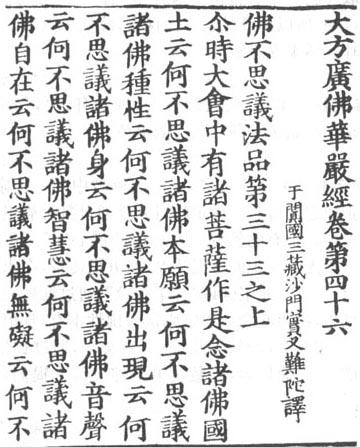 大方廣佛華嚴經卷第四十六
于闐國三藏沙門實叉難陀譯
佛不思議法品第三十三之上
尒時大會中有諸菩薩作是念諸佛國
土云何不思議諸佛本願云何不思議
諸佛種性云何不思議諸佛出現云何
不思議諸佛身云何不思議諸佛音聲
云何不思議諸佛智慧云何不思議諸
佛自在云何不思議諸佛無礙云何不